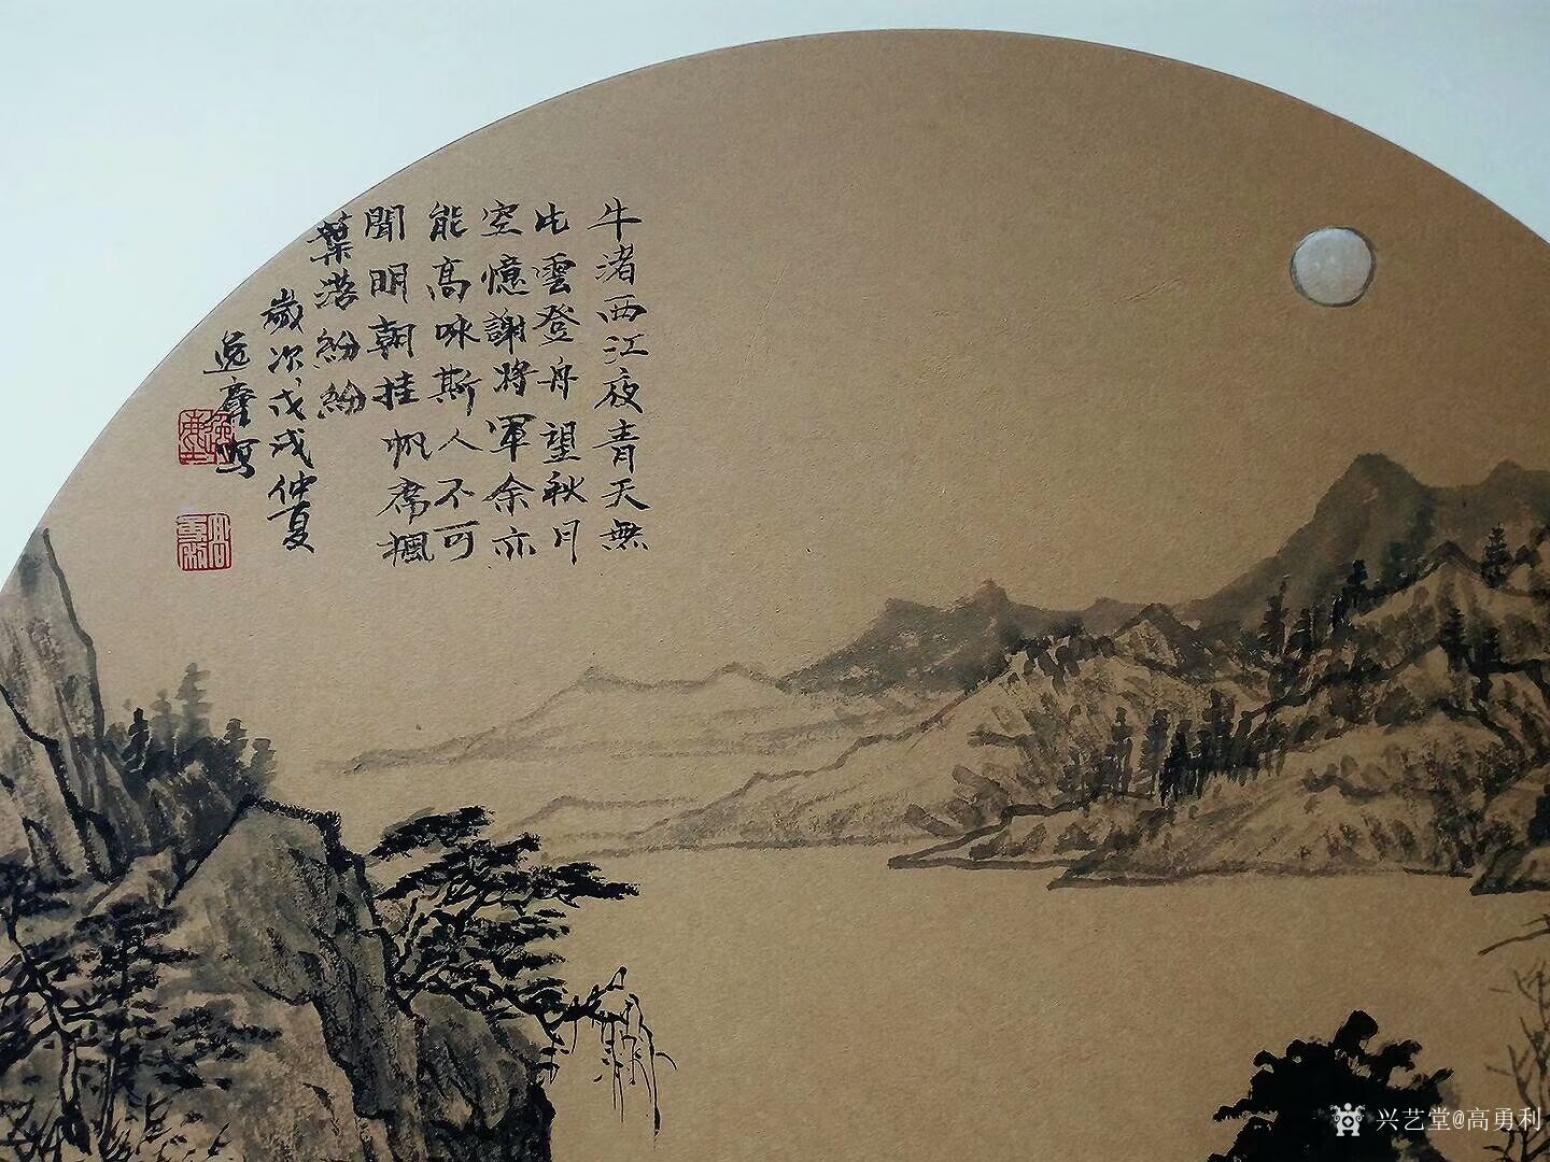 牛渚西江夜青天無
片雲登舟望秋月
空憶謝將軍余亦
能高咏斯人不可
聞明朝挂帆席楓
葉落紛紛
歲次戊戌仲夏
逸塵寫
兴艺堂@高勇利